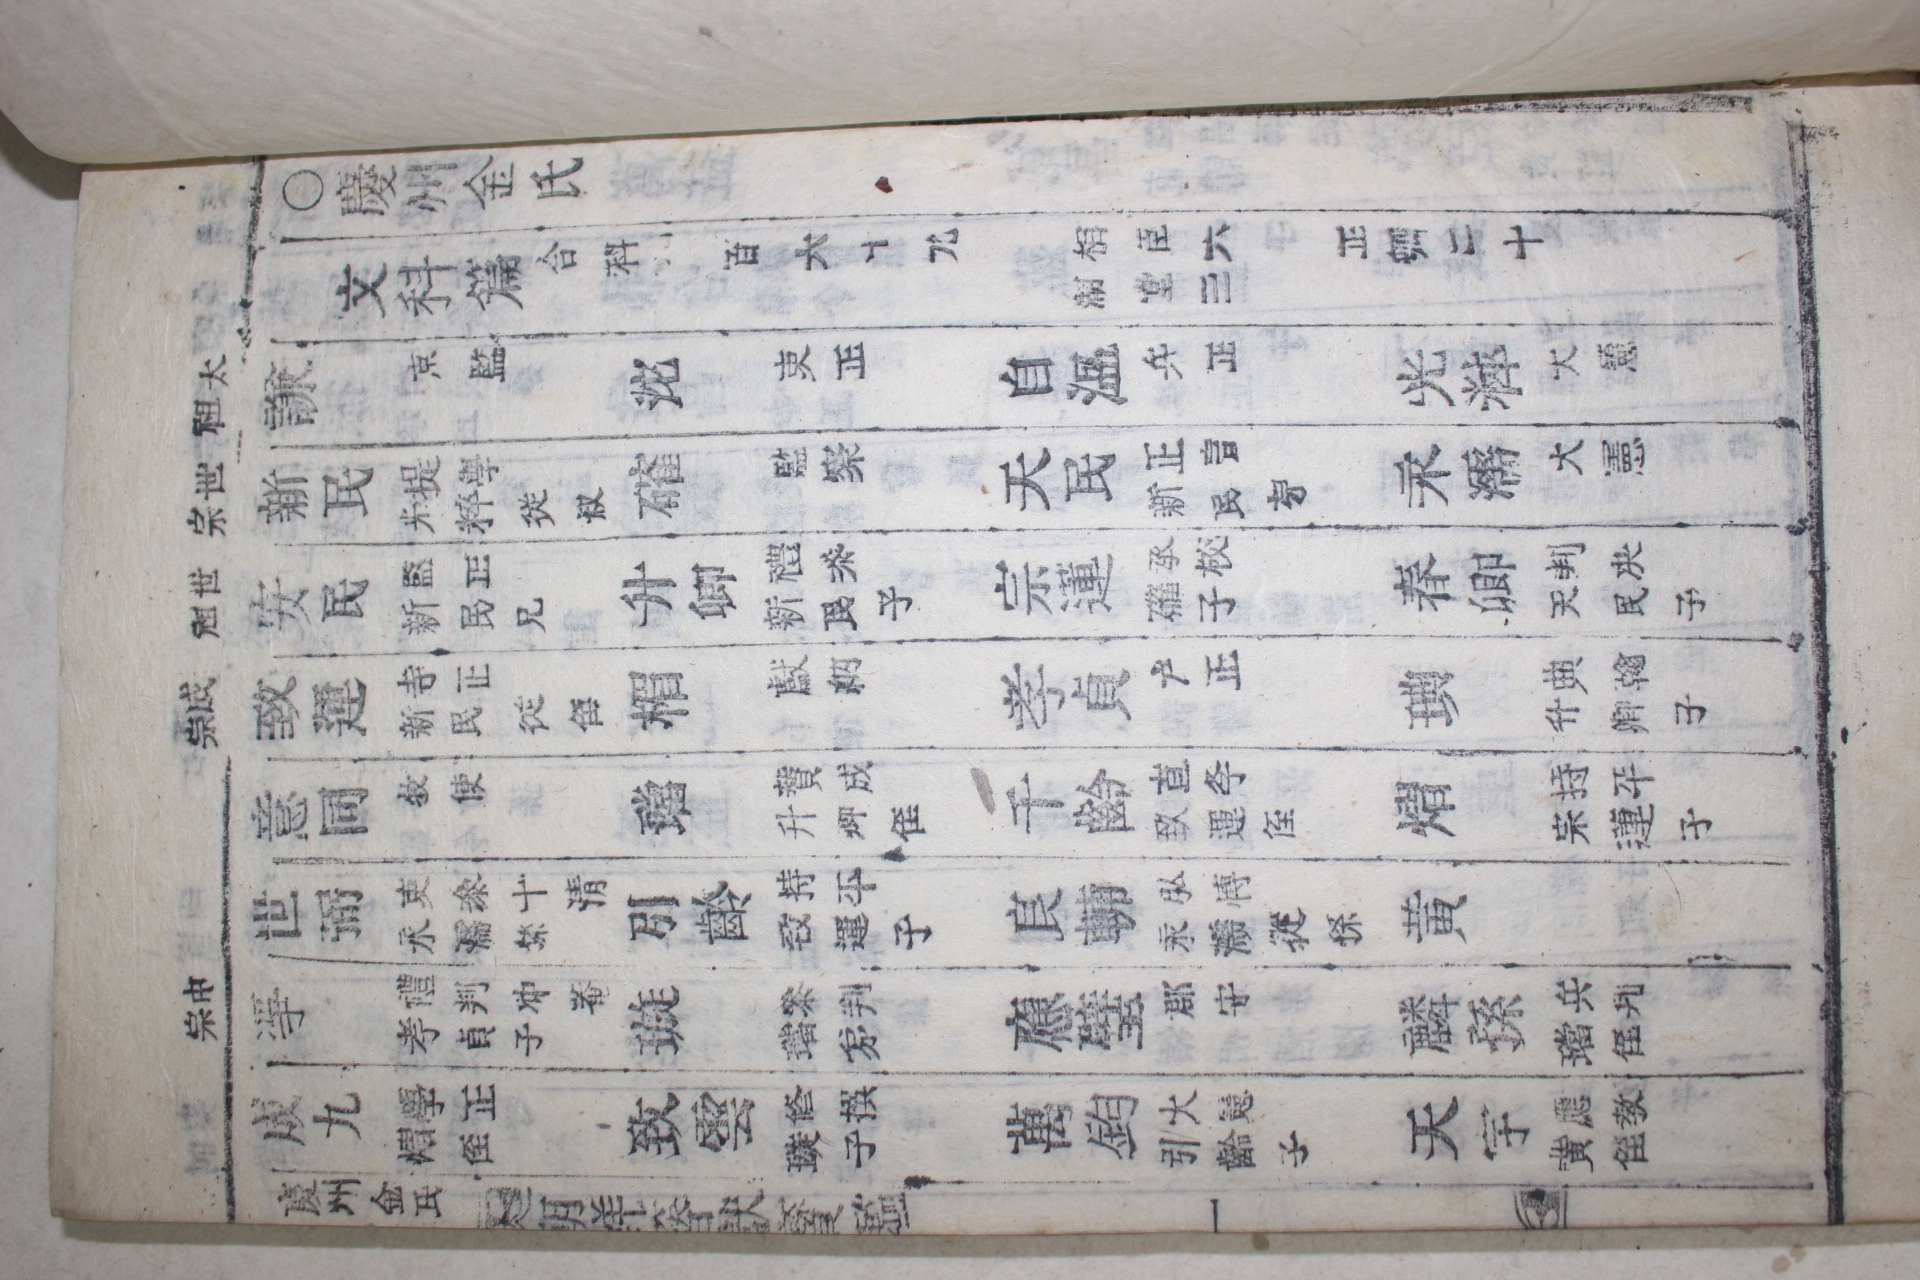 ○慶州金氏
文科篇 合科 百六十九 相臣六 湖堂三 正卿二十
太祖
謙 京監 沱 吏正 自溫 兵正 光粹 大憲
世宗
新民 提學 光粹從叔 確 監察 天民 正言 新民弟 永濡 大憲
世祖
安民 監正 新民兄 升卿 禮參 新民子 宗蓮 承校 確子 春卿 判決 天民子
成宗
致運 寺正 新民從侄 楣 獻納 孝貞 戶正 瑛 典翰 升卿子
意同 牧使 璫 贊成 升卿侄 千齡 直學 致運侄 熠 持平 宗蓮子
世弼 吏參 十清 永濡孫 引齡 持平 致運子 良輔 弘博 永濡從孫 黃
中宗
淨 禮判 冲菴 孝貞子 璇 參判 璫弟 應璧 郡守 麟孫 兵判 璫侄
成九 學正 熠侄 致雲 修撰 璇子 萬鈞 大憲 引齡子 天宇 應教 黃侄
慶州金氏 一